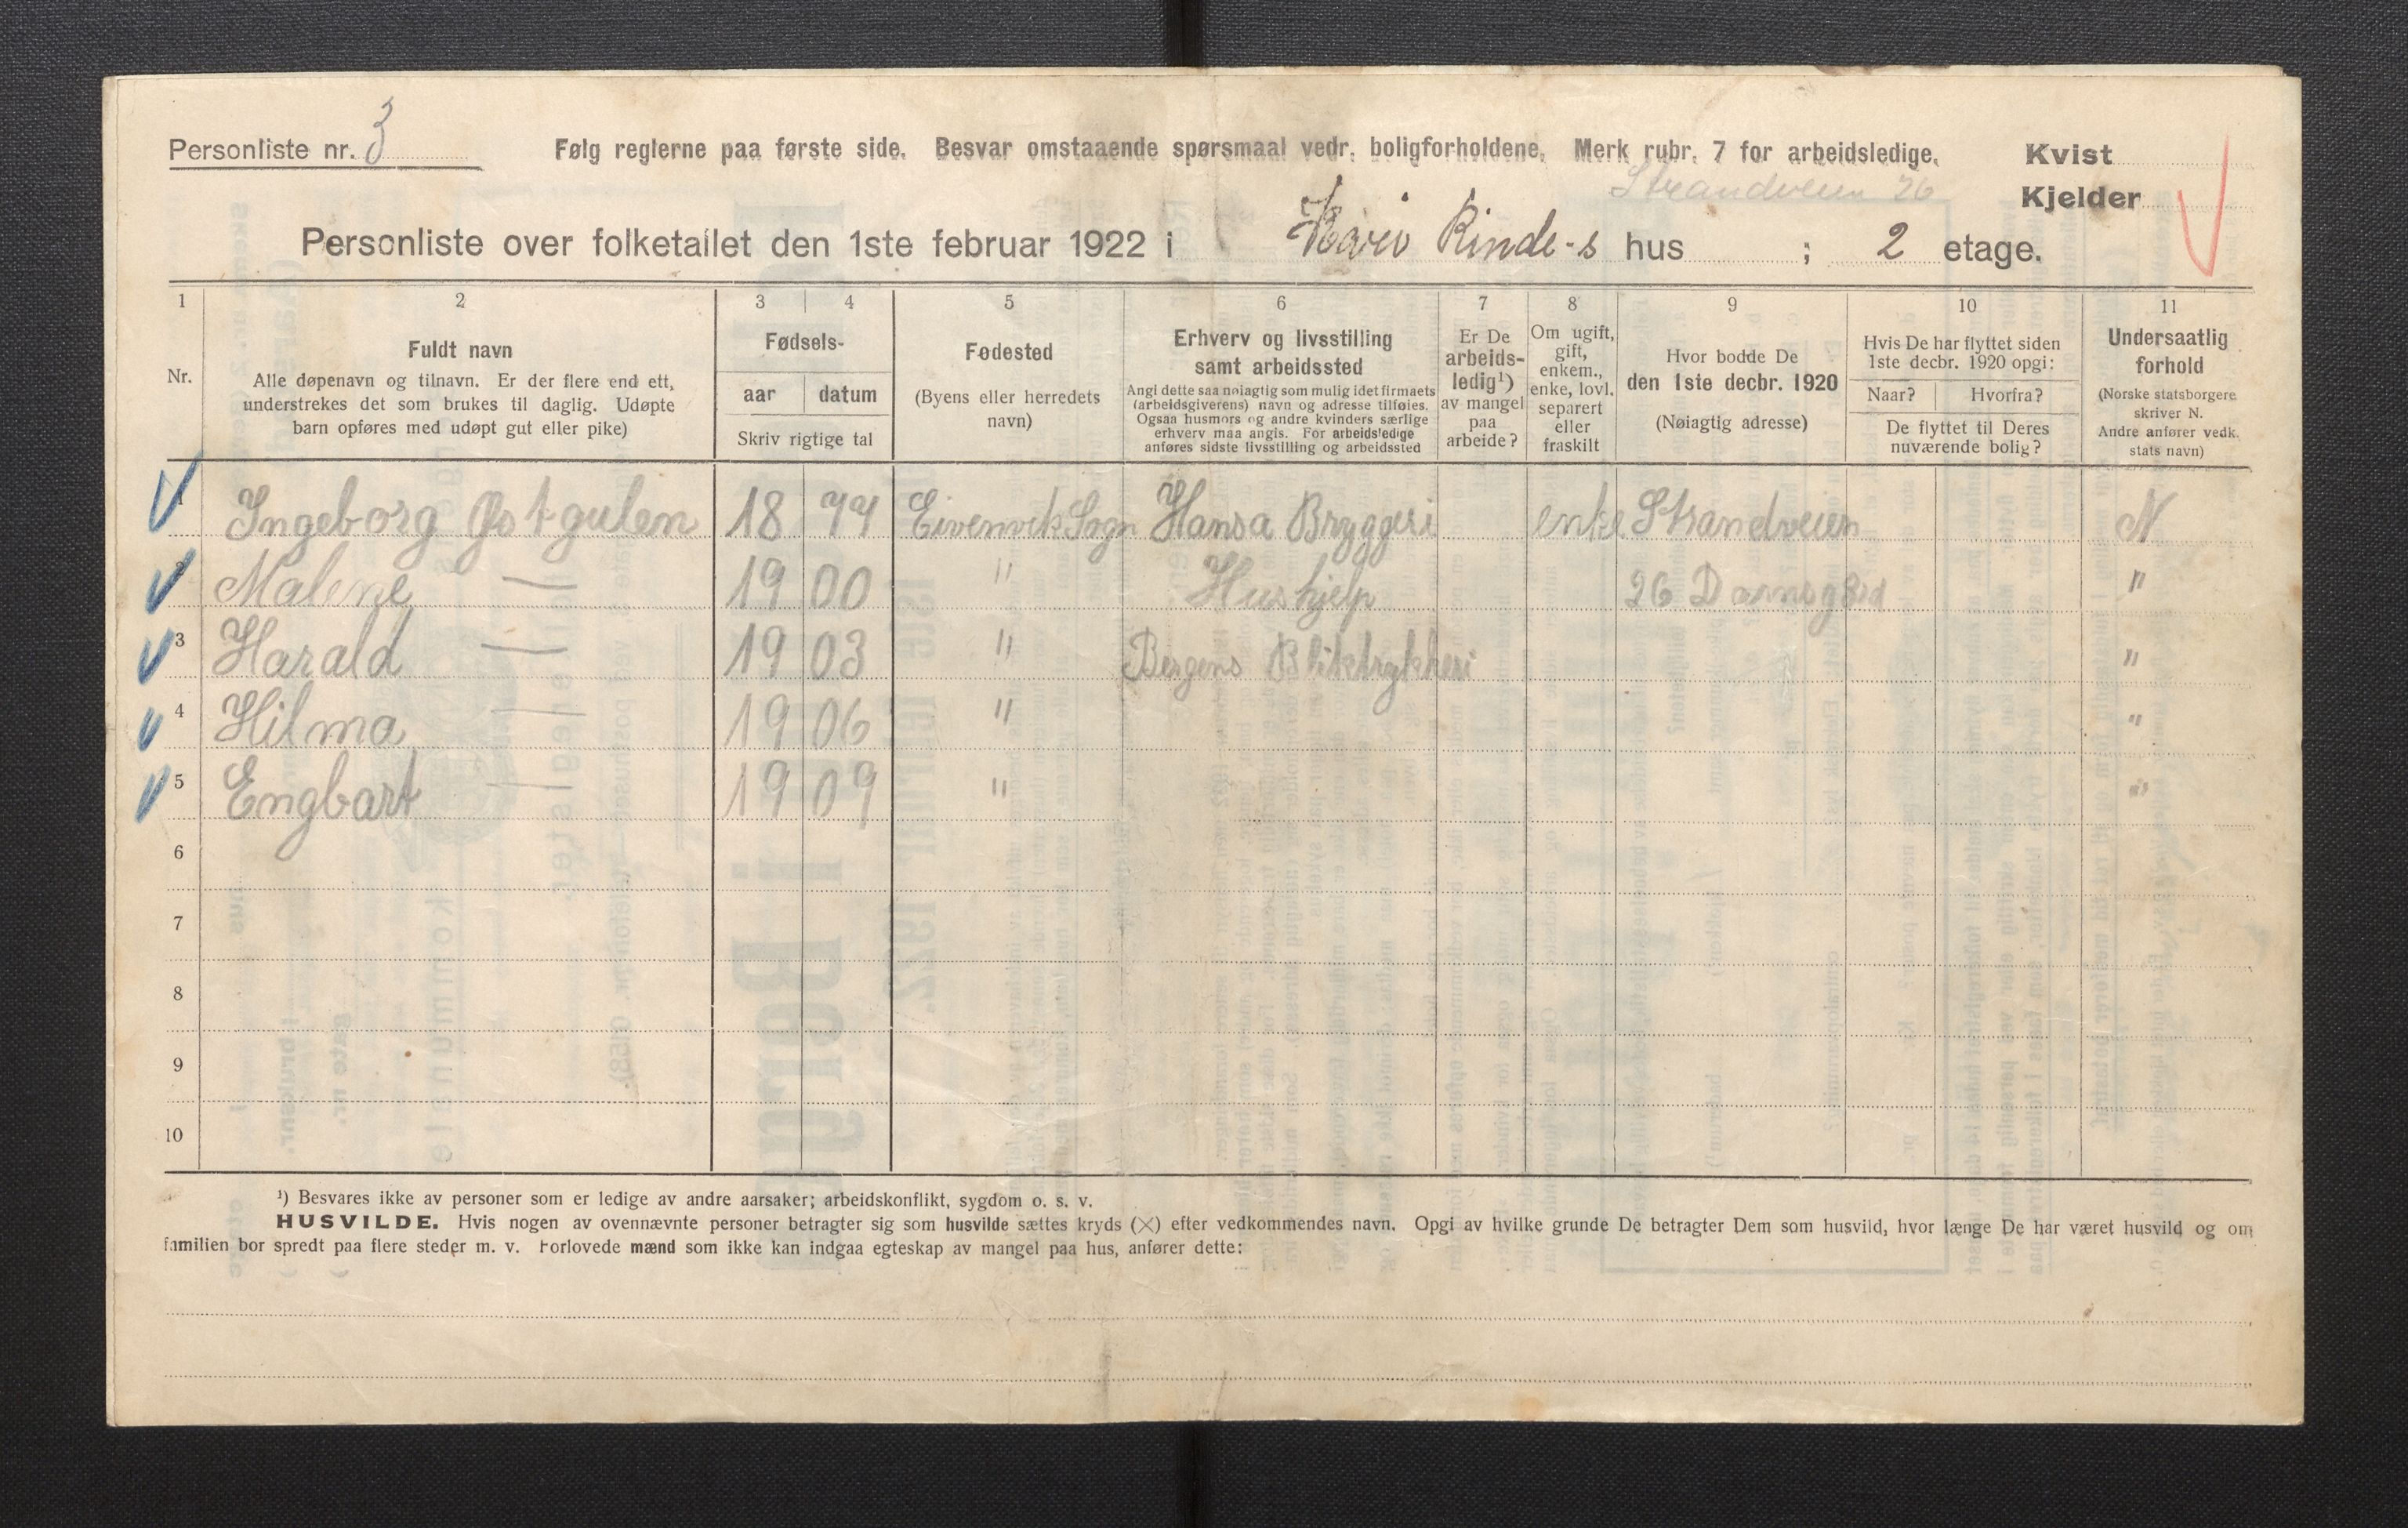 Personliste nr. 3
Følg reglerne paa første side. Besvar omstaaende spørsmaal vedr. boligforholdene. Merk rubr. 7 for arbeidsledige.
Kvist
Strandveien 26
Kjelder
Personliste over folketallet den 1ste februar 1922 i Rinde-s hus ; 2 etage.
1 2 3 4 5 6 7 8 9 10 11
Nr.
Fuldt navn
Alle døpenavn og tilnavn. Er der flere end ett,
understrekes det som brukes til daglig. Udøpte
barn opføres med udøpt gut eller pike)
Fødsels-
aar datum
Skriv rigtige tal
Fødested
(Byens eller herredets
navn)
Erhverv og livsstilling
samt arbeidssted
Angi dette saa nøiagtig som mulig idet firmaets
(arbeidsgiverens) navn og adresse tilføies.
Ogsaa husmors og andre kvinders særlige
erhverv maa angis. For arbeidsledige
anføres sidste livsstilling og arbeidssted
Er De
arbeids-
ledig¹)
av mangel
paa
arbeide?
Om ugift,
gift,
enkem.,
enke, lovl.
separert
eller
fraskilt
Hvor bodde De
den 1ste decbr. 1920
(Nøiagtig adresse)
Hvis De har flyttet siden
1ste decbr. 1920 opgi:
Naar? Hvorfra?
De flyttet til Deres
nuværende bolig?
Undersaatlig
forhold
(Norske statsborgere
skriver N.
Andre anfører vedk.
stats navn)
1 Ingeborg Østgulen 18 77 Eivenvik Sogn Hansa Bryggeri enke Strandveien N
2 Malene — 19 00 " Hushjelp 26 Damsgård "
3 Harald — 19 03 " Bergens Bliktrykkeri "
4 Hilma — 19 06 " "
5 Engbart — 19 09 " "
6
7
8
9
10
¹) Besvares ikke av personer som er ledige av andre aarsaker; arbeidskonflikt, sygdom o. s. v.
HUSVILDE. Hvis nogen av ovennævnte personer betragter sig som husvilde sættes kryds (×) efter vedkommendes navn. Opgi av hvilke grunde De betragter Dem som husvild, hvor længe De har været husvild og om
familien bor spredt paa flere steder m. v. Forlovede mænd som ikke kan indgaa egteskap av mangel paa hus, anfører dette: